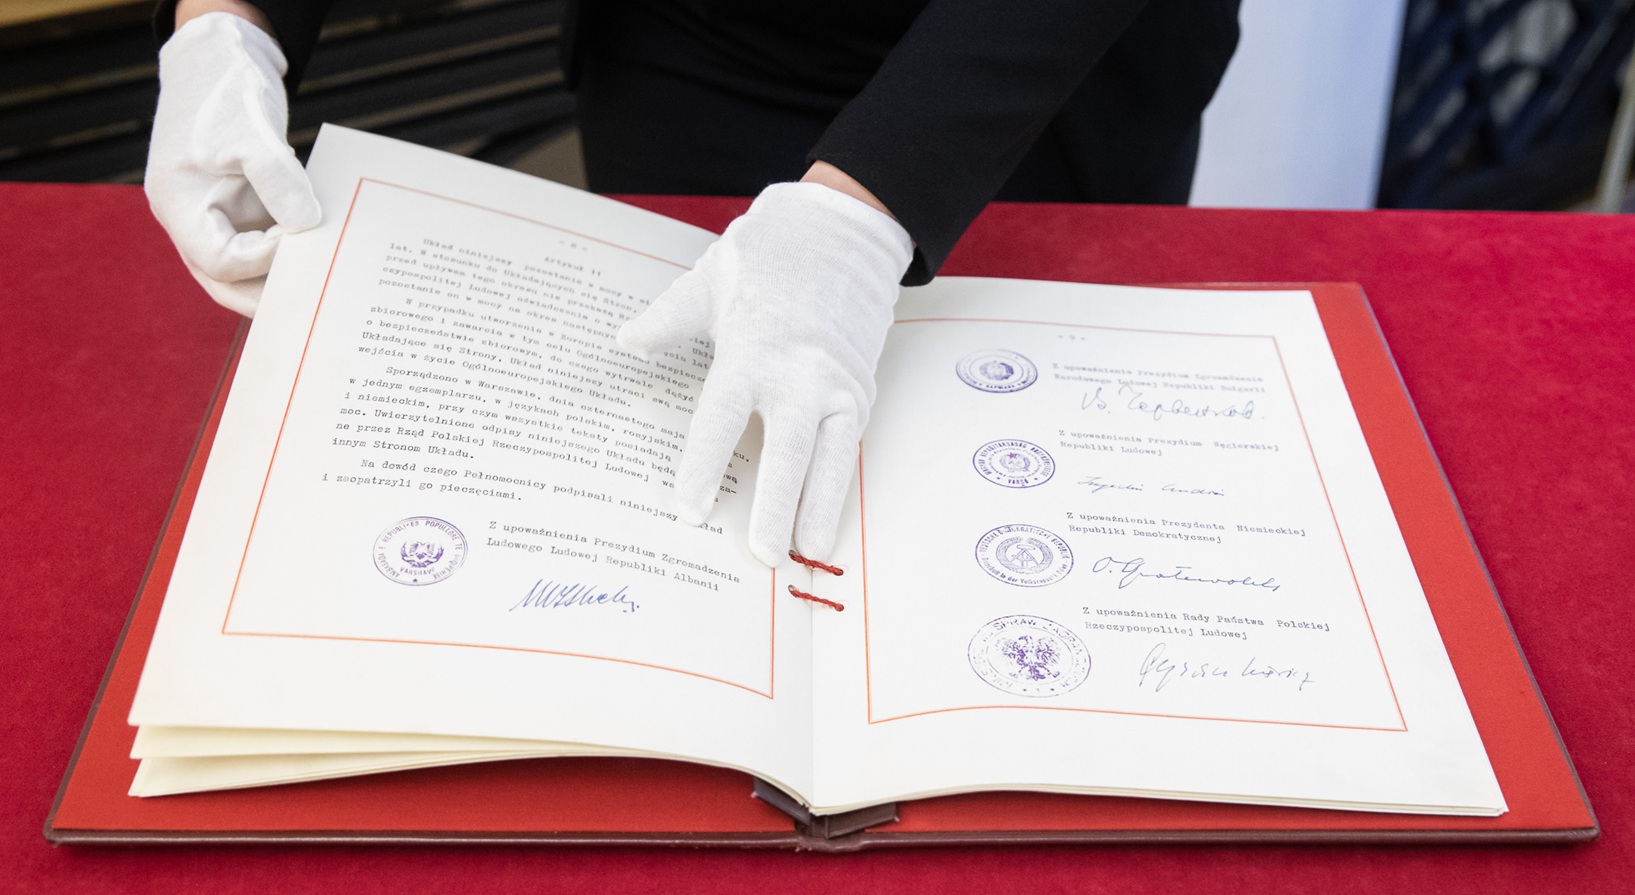 - 8 -
Artykuł 11
Układ niniejszy pozostanie w mocy w
lat. W stosunku do Układających się Stron,
przed upływem tego okresu nie przekażą
czypospolitej Ludowej oświadczenia o
pozostanie on w mocy na okres następnych
W przypadku utworzenia w Europie systemu bezpiecze
zbiorowego i zawarcia w tym celu Ogólnoeuropejskiego
o bezpieczeństwie zbiorowym, do czego wytrwale dążyć
Układające się Strony, Układ niniejszy utraci swą moc
wejścia w życie Ogólnoeuropejskiego Układu.
Sporządzono w Warszawie, dnia czternastego maja
w jednym egzemplarzu, w językach polskim, rosyjskim,
i niemieckim, przy czym wszystkie teksty posiadają
moc. Uwierzytelnione odpisy niniejszego Układu będą
ne przez Rząd Polskiej Rzeczypospolitej Ludowej
innym Stronom Układu.
Na dowód czego Pełnomocnicy podpisali niniejszy Układ
i zaopatrzyli go pieczęciami.
Z upoważnienia Prezydium Zgromadzenia
Ludowego Ludowej Republiki Albanii
AMBASADA E REPUBLIKES POPULLORE TE SHQIPERISE
VARSHAVE
- 9 -
Z upoważnienia Prezydium Zgromadzenia
Narodowego Ludowej Republiki Bułgarii
Z upoważnienia Prezydium Węgierskiej
Republiki Ludowej
VARSÓ
Z upoważnienia Prezydenta Niemieckiej
Republiki Demokratycznej
O. Grotewohl
Z upoważnienia Rady Państwa Polskiej
Rzeczypospolitej Ludowej
Cyrankiewicz